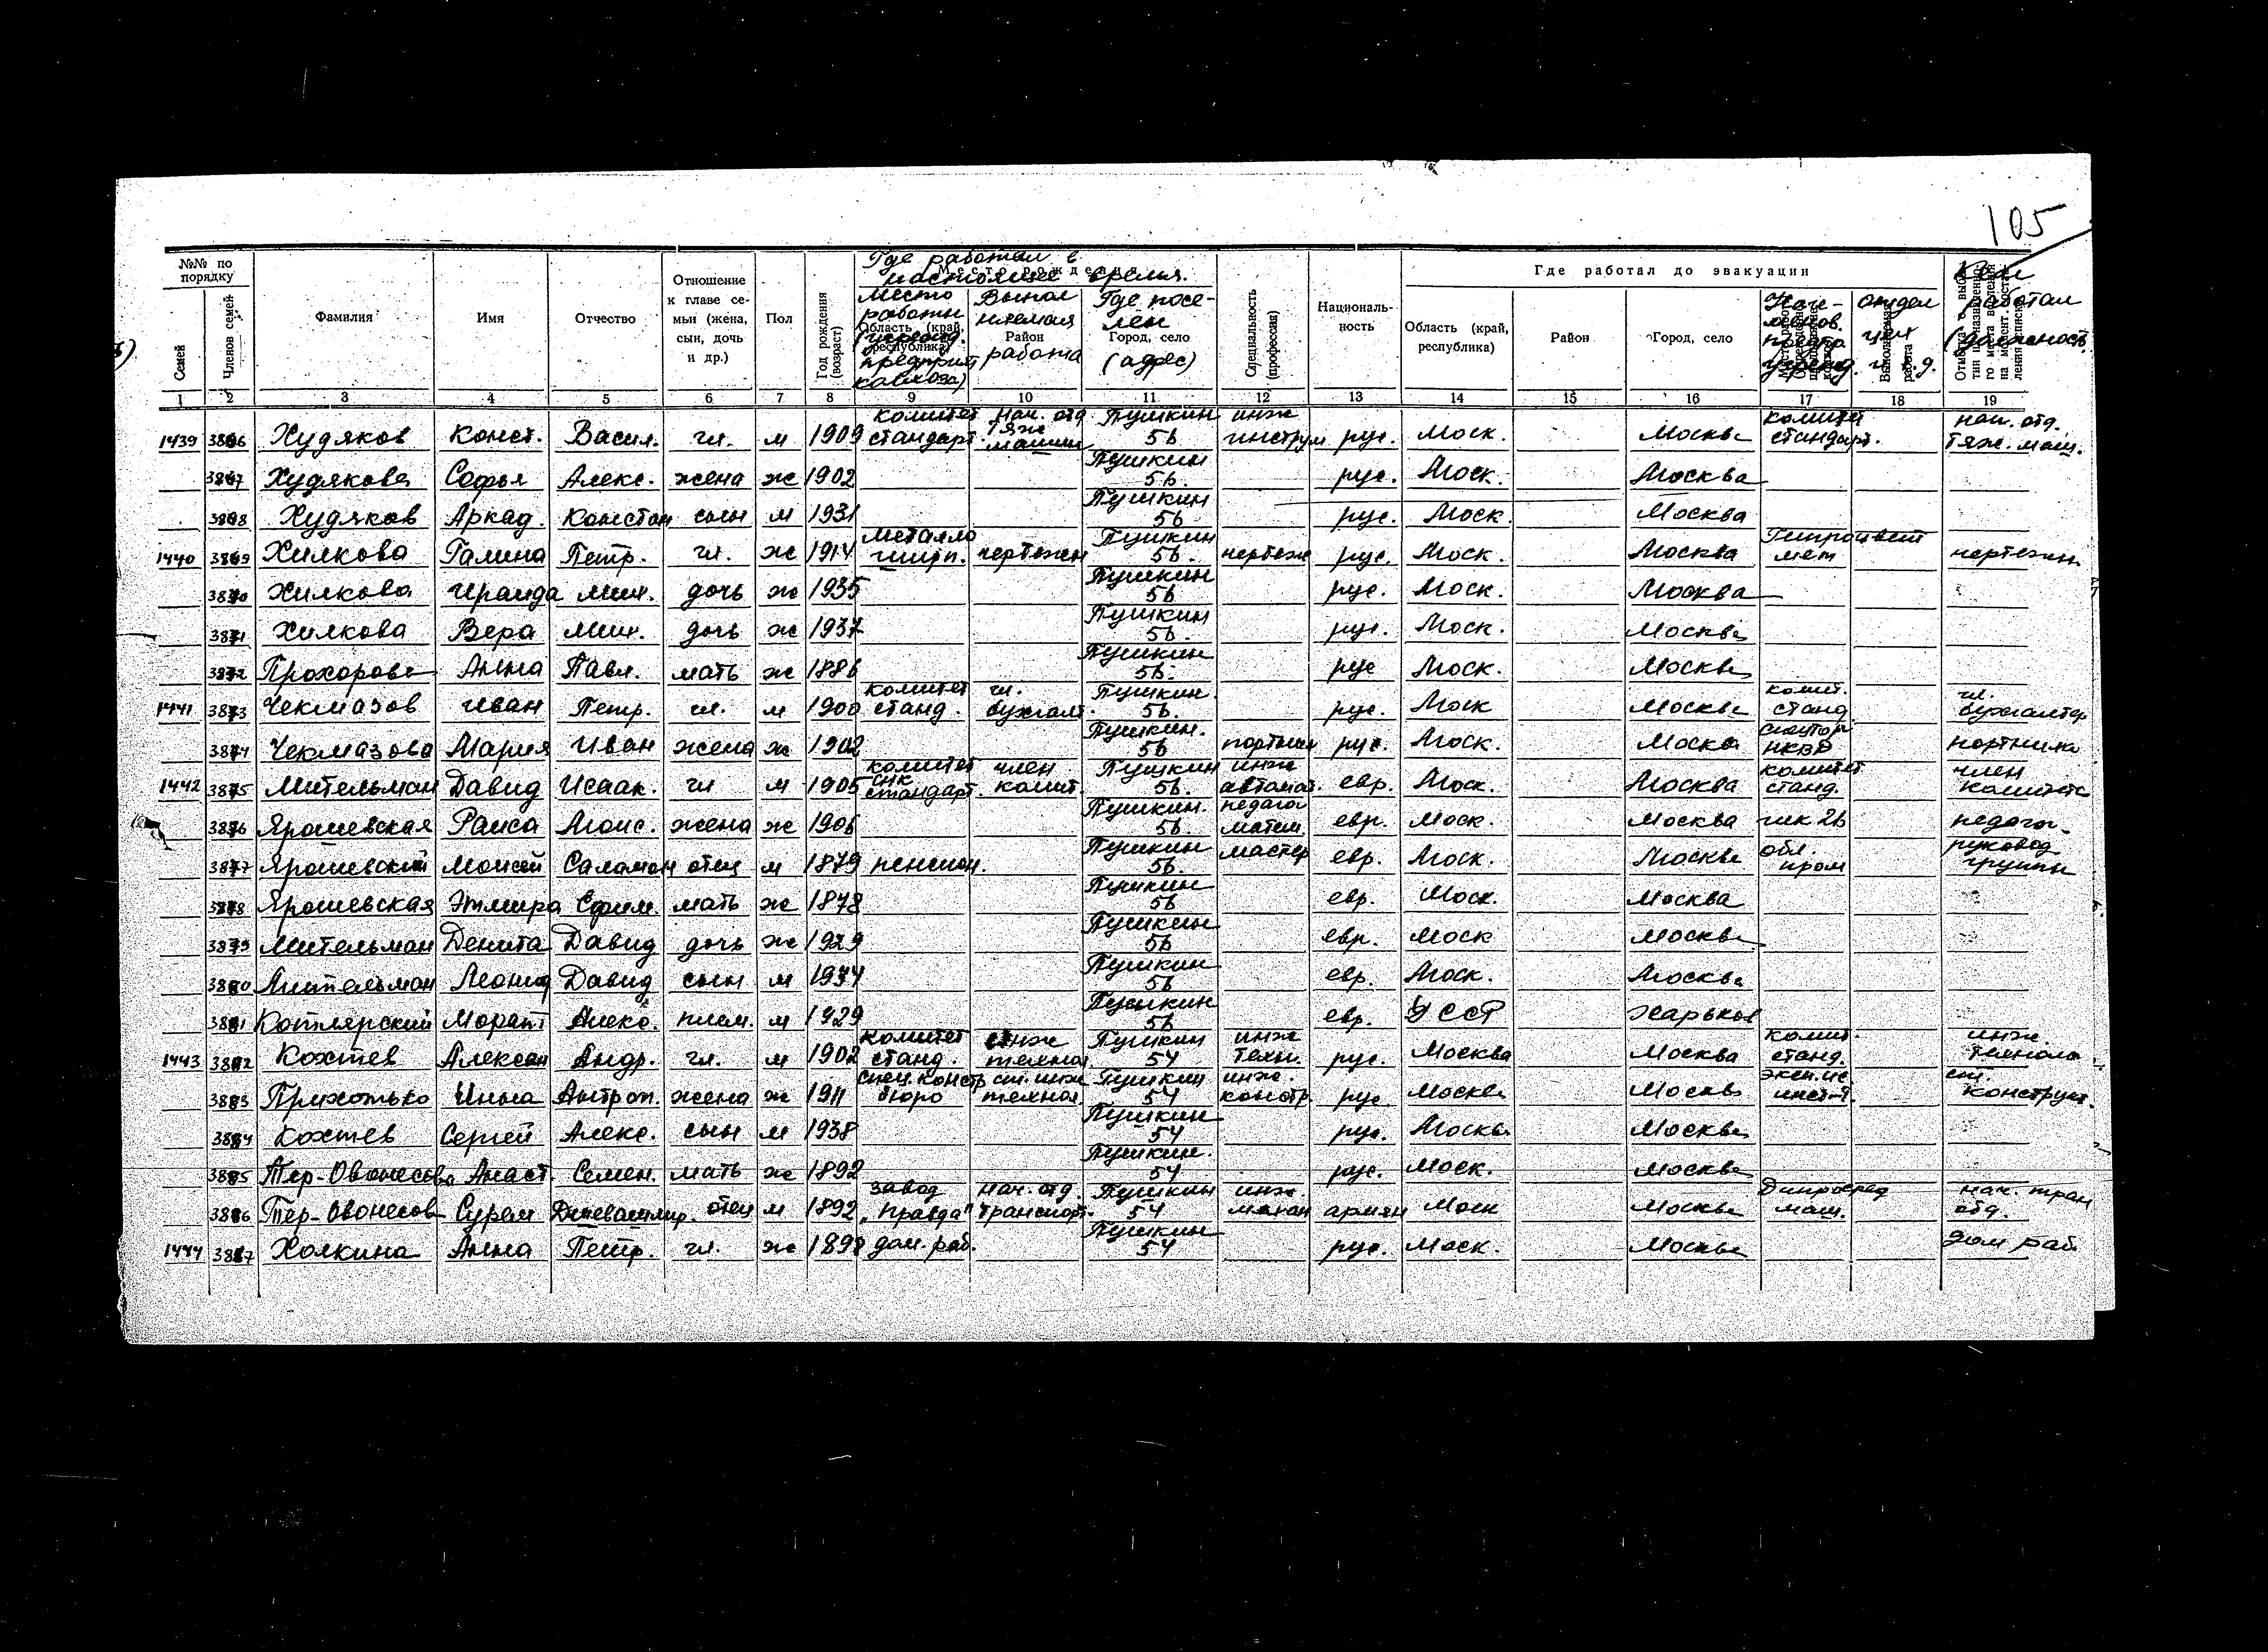 105
№№ по порядку
Семей
Членов семей
Фамилия
Имя
Отчество
Отношение к главе семьи (жена, сын, дочь и др.)
Пол
Год рождения (возраст)
Где работал в настоящее время.
Место рождения
Место работы
Область (край, республика)
Район работа
Где поселён
Город, село
(адрес)
Специальность (профессия)
Националь-ность
Где работал до эвакуации
Область (край, республика)
Район
Город, село
Кем работал
1 2 3 4 5 6 7 8 9 10 11 12 13 14 15 16 17 18 19
1439 3866 Худяков Конст. Васил. гл. м 1909 комитет стандарт. нач. отд. тяж машин Пушкин 56 инж инструм рус. Моск. Москва комитет стандарт. нач. отд. тяж. маш.
3867 Худякова Софья Алекс. жена ж 1902 Пушкин 56. рус. Моск. Москва
3868 Худяков Аркад. Констан сын м 1931 Пушкин 56 рус. Моск. Москва
1440 3869 Хилкова Галина Петр. гл. ж 1914 чертежн Пушкин 56. чертеж рус. Моск. Москва чертежн.
3870 Хилкова Ираида Мих. дочь ж 1935 Пушкин 56 рус. Моск. Москва
3871 Хилкова Вера Мих. дочь ж 1937 Пушкин 56. рус. Моск. Москва
3872 Прохорова Анна Павл. мать ж 1886 Пушкин 56. рус Моск. Москва
1441 3873 Чекмазов Иван Петр. гл. м 1900 комитет станд. гл. бухгалт. Пушкин. 56. рус. Моск Москва комит. станд. гл. бухгалтер
3874 Чекмазова Мария Иван жена ж 1902 Пушкин. 56 портних рус. Моск. Москва НКВД портниха
1442 3875 Мительман Давид Исаак. гл м 1905 комитет стандарт. член комит. Пушкин 56. инж автомат. евр. Моск. Москва комитет станд. член комитета
3876 Ярошевская Раиса Моис. жена ж 1906 Пушкин. 56 педагог матем. евр. Моск. Москва педагог.
3877 Ярошевский Моисей Саламон отец м 1879 пенсион. Пушкин 56. мастер евр. Моск. Москва обл. пром руковод группы
3878 Ярошевская Эльмира Ефим. мать ж 1878 Пушкин 56 евр. Моск. Москва
3879 Мительман Денита Давид дочь ж 1929 Пушкин 56 евр. Моск Москва
3880 Мительман Леонид Давид сын м 1934 Пушкин 56 евр. Моск. Москва
3881 Котлярский Морат Алекс. плем. м 1929 Пушкин 56 евр. УССР Харьков
1443 3882 Кохтев Алексан Андр. гл. м 1902 комитет станд. инж технол. Пушкин 54 инж техн. рус. Москва Москва комит. станд. инж. технолог
3883 Прихотько Инна Антроп. жена ж 1911 спец. констр бюро ст. инж технол. Пушкин 54 инж. констр. рус Москва Москва инст-т. ст. конструкт.
3884 Кохтев Сергей Алекс. сын м 1938 Пушкин 54 рус. Москва Москва
3885 Тер-Ованесова Анаст. Семен. мать ж 1892 Пушкин. 54 рус. Моск. Москва
3886 Тер-Ованесов Сурен отец м 1892 завод „Правда" нач. отд. транспорт. Пушкин 54 инж. механ армян Моск Москва нач. тран отд.
1444 3887 Холкина Анна Петр. гл. ж 1898 дом. раб. Пушкин 54 рус. Моск. Москва дом раб.